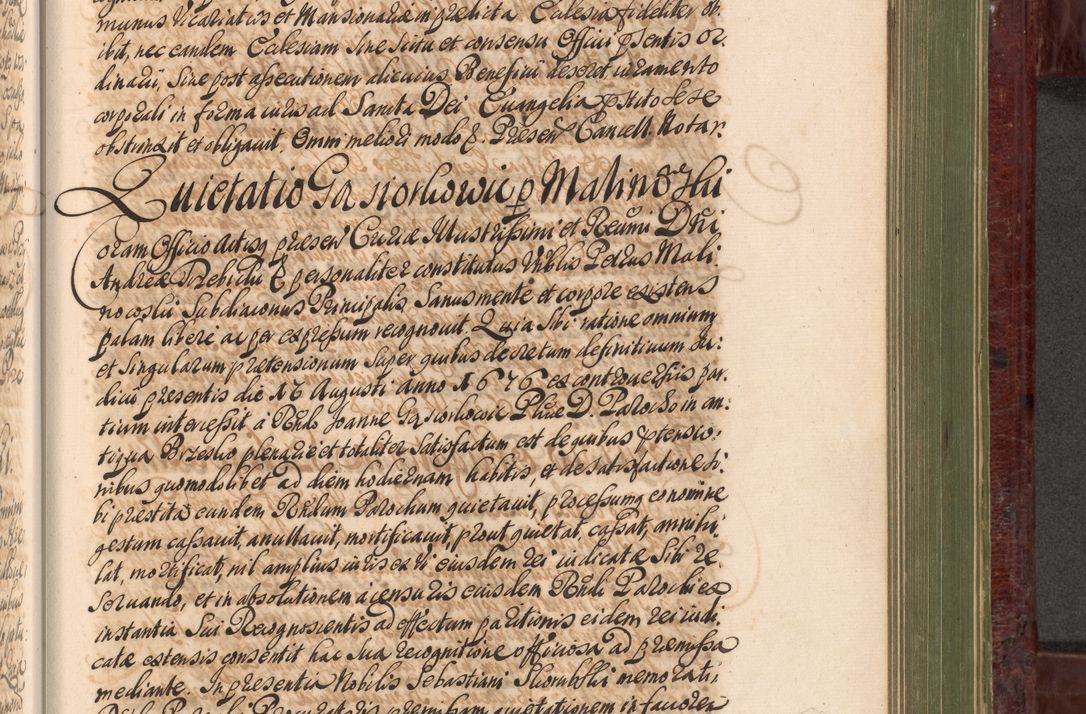 munus Vicariatus et Mansionariae in praedicta Ecclesia fideliter ob:
ibit, nec eandem Ecclesiam sine scitu et consensu Officii psentis or:
dinarii, sine post assecutionem alicuius Beneficii deseret, iuramento
corporali in forma iuris ad Sancta Dei Euangelia pstito sese
obstrinxit et obligauit. Omni meliori modo &. Presen Cancell. Notar.
Quietatio Gąsiorkowic p Malinoskii
Coram Officio Actisq presen Curiae Illustrissimi et Reumi Dni
Andreae Trzebicki & personaliter constitutus Nblis Petrus Mali:
nowskii Subdiaconus Principalis sanus mente et corpore existens
palam libere ac per expressum recognouit. Quia sibi ratione omnium
et singularum praetensionum super quibus decretum definitiuum iu:
dicii presentis die 17 Augusti anno 1676 ex controuersiis par:
tium intercessit a Rndo Joanne Gąsiorkowic Phiae D. Parocho in an:
tiqua Brzesko plenarie et totaliter satisfactum est de quibus ptensio:
nibus quomodolibet ad diem hodiernam habitis, et de satisfactione si:
bi praestita eundem Rndum Parochum quietauit, processumq eo nomine
gestum cassauit, anullauit, mortificauit, prout quietat, cassat, annihi:
lat, mortificat, nil amplius iuris ex vi eiusdem rei iudicatae sibi re:
seruando, et in absolutionem a censuris eiusdem Rndi Parochi ex
instantia sui Recognoscentis ad effectum paritionis eidem rei iudi:
catae extensis consentit hac sua recognitione officiosa ad praemissa
mediante. In presentia Nobilis Sebastiani Skorubski memorati,